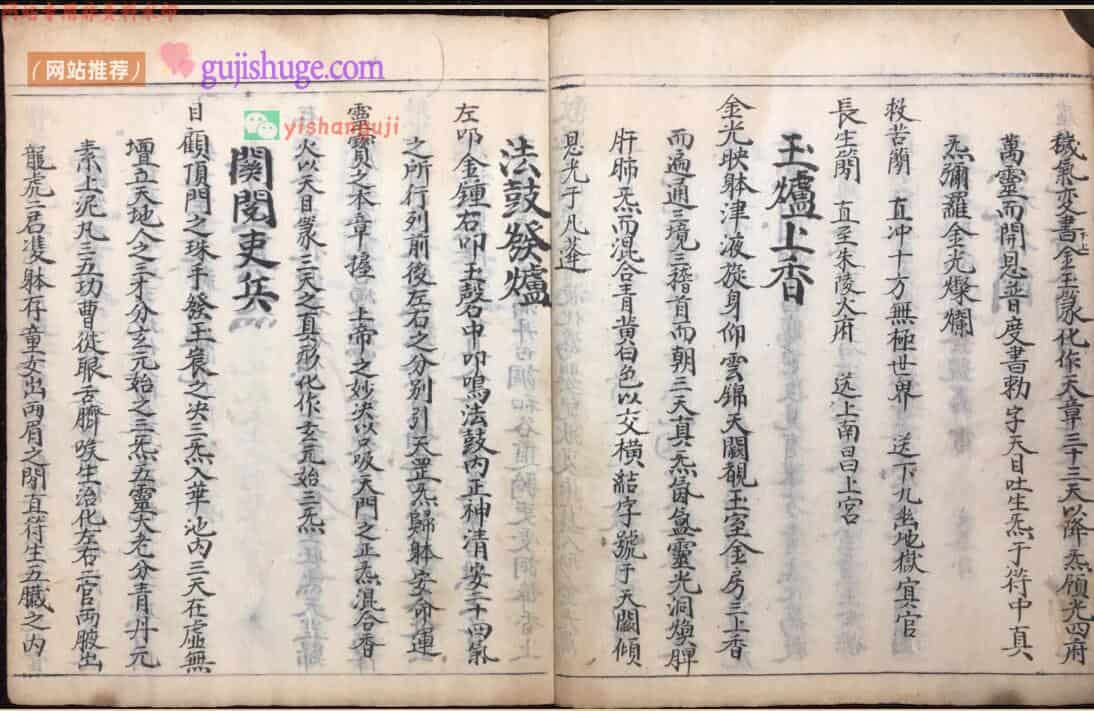 网站专用防资料水印
（网站推荐）
gujishuge.com
yishanguji
穢氣変書金玉篆化作天章三十三天以降炁願光四府
萬靈而開恩普度書勅字天目吐生炁于符中真
炁彌羅金光爍爛
救苦蕳 直冲十方無極世界 送下九幽地獄宜官
長生蕳 直至朱陵火府 送上南昌上宮
玉爐上香
金光映躰津液旋身仰雲錦天闕覩玉室金房三上香
而遍通三境三稽首而朝三天真炁氤氳靈光洞煥脾
肝肺炁而混合青黄白色以交橫結字號于天闕傾
恩光于凡筵
法鼓發爐
左叩金鍾右叩玉磬中叩鳴法鼓內正神清安二十四氣
之所行列前後左右之分別引天罡炁歸躰安命運
靈寶之本章握上帝之妙決以吸天門之正炁混合香
火以天目篆三天之真形化作玄元始三炁
関閱吏兵
目顧頂門之珠手發王衰之决三炁入華池內三天在虛無
壇立天地人之三才分玄元始之三炁五靈大老分青丹元
素上泥凡三五功曹從眼舌臍喚生治化左右二官両腋出
龍虎二君雙躰存童女出両眉之閒直符生五臟之內